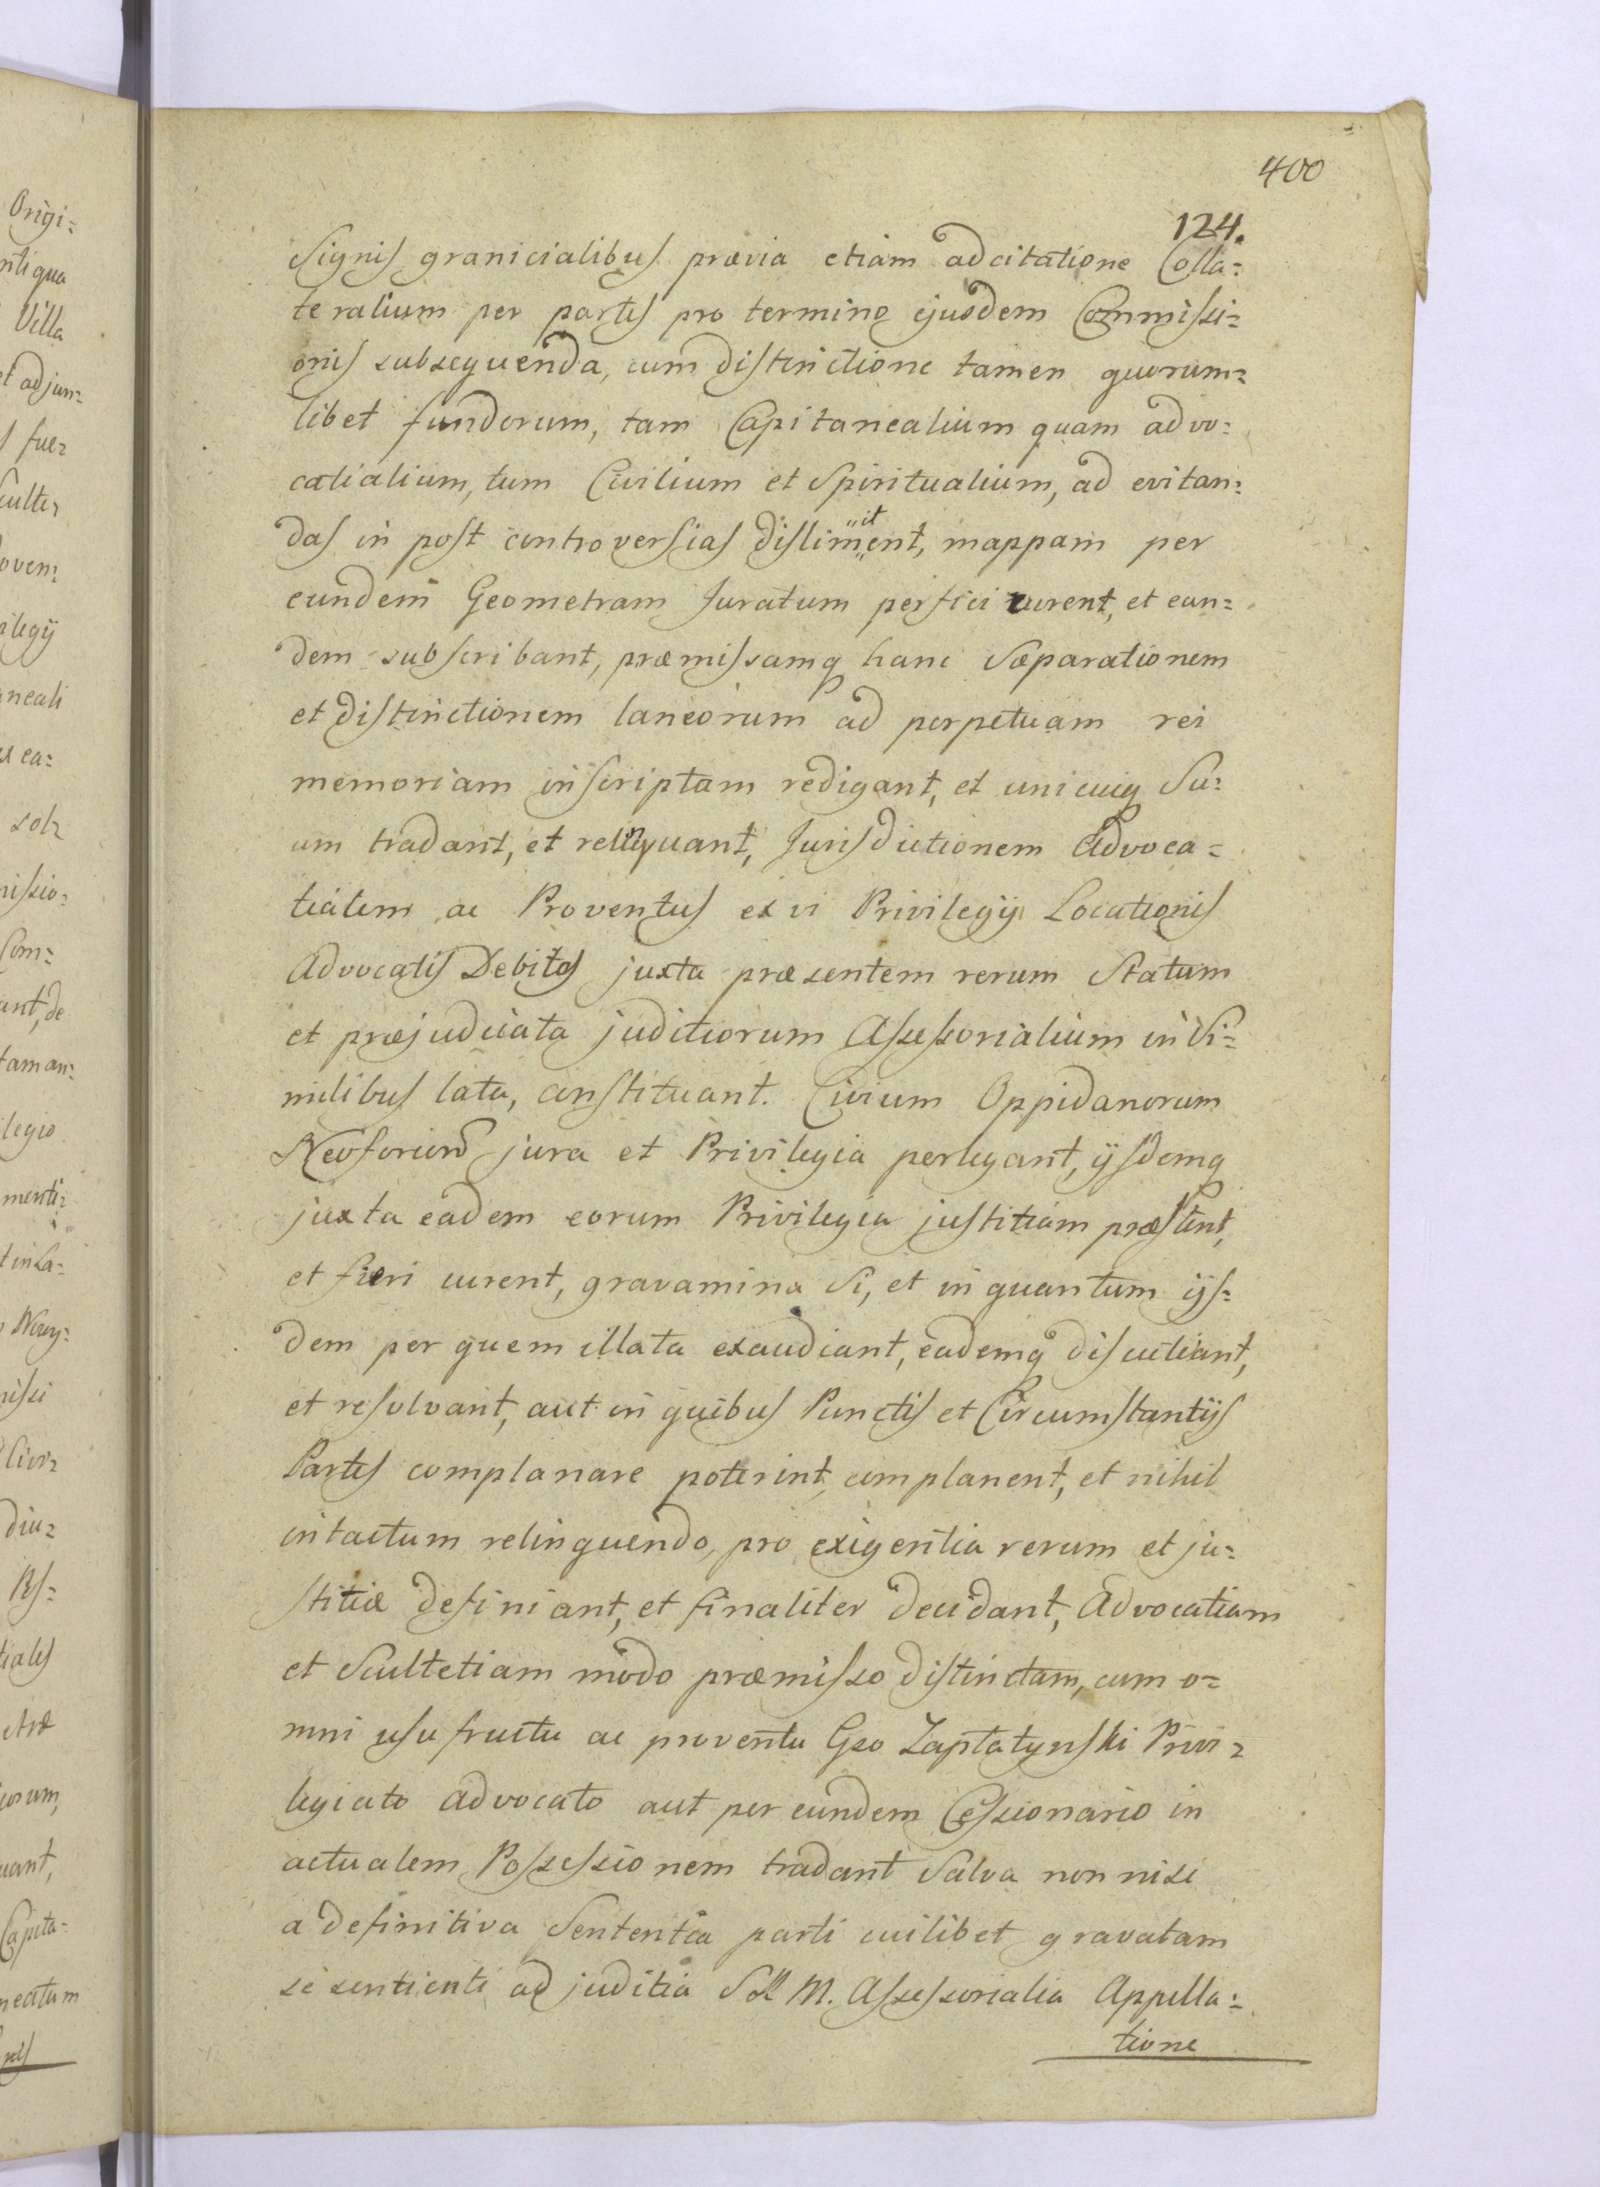 400
124.
Signis granicialibus prævia etiam adcitatione Colla=
teralium per partes pro termino ejusdem Commissi=
onis subsequenda, cum distinctione tamen quorum=
libet fundorum, tam Capitanealium quam advo=
catialium, tum Civilium et Spiritualium, ad evitan=
das in post controversias dislimitent, mappam per
eundem Geometram Juratum perfici curent, et ean=
dem subscribant, præmissamq hanc Sæparationem
et distinctionem laneorum ad perpetuam rei
memoriam inscriptam redigant, et unicuiq Su=
um tradant, et relinquant, Jurisdictionem Advoca=
tialem ac Proventus ex vi Privilegij Locationis
Advocatis Debitos juxta præsentem rerum Statum
et præjudicata juditiorum Assessorialium in Si=
milibus lata, constituant. Civium Oppidanorum
Neoforien jura et Privilegia perlegant, ijsdemq
juxta eadem eorum Privilegia justitiam præstent,
et fieri curent, gravamina Si, et in quantum ijs=
dem per quem illata exaudiant, eademq discutiant,
et resolvant, aut in quibus Punctis et Circumstantijs
Partes complanare poterint, complanent, et nihil
intactum relinquendo, pro exigentia rerum et ju=
stitiæ definiant, et finaliter decidant, Advocatiam
et Scultetiam modo præmisso distinctam, cum o=
mni usufructu ac proventu Gso Zaptatynski Privi=
legiato advocato aut per eundem Cessionario in
actualem Possessionem tradant Salva non nisi
a definitiva Sententia parti cuilibet gravatam
se sentienti ad juditia S R M. Assessorialia Appella=
tione
Origi=
Villa
et adjun=
ilegij
neali
missio=
Com=
legio
menti=
t in La=
diu=
orum,
Capita=